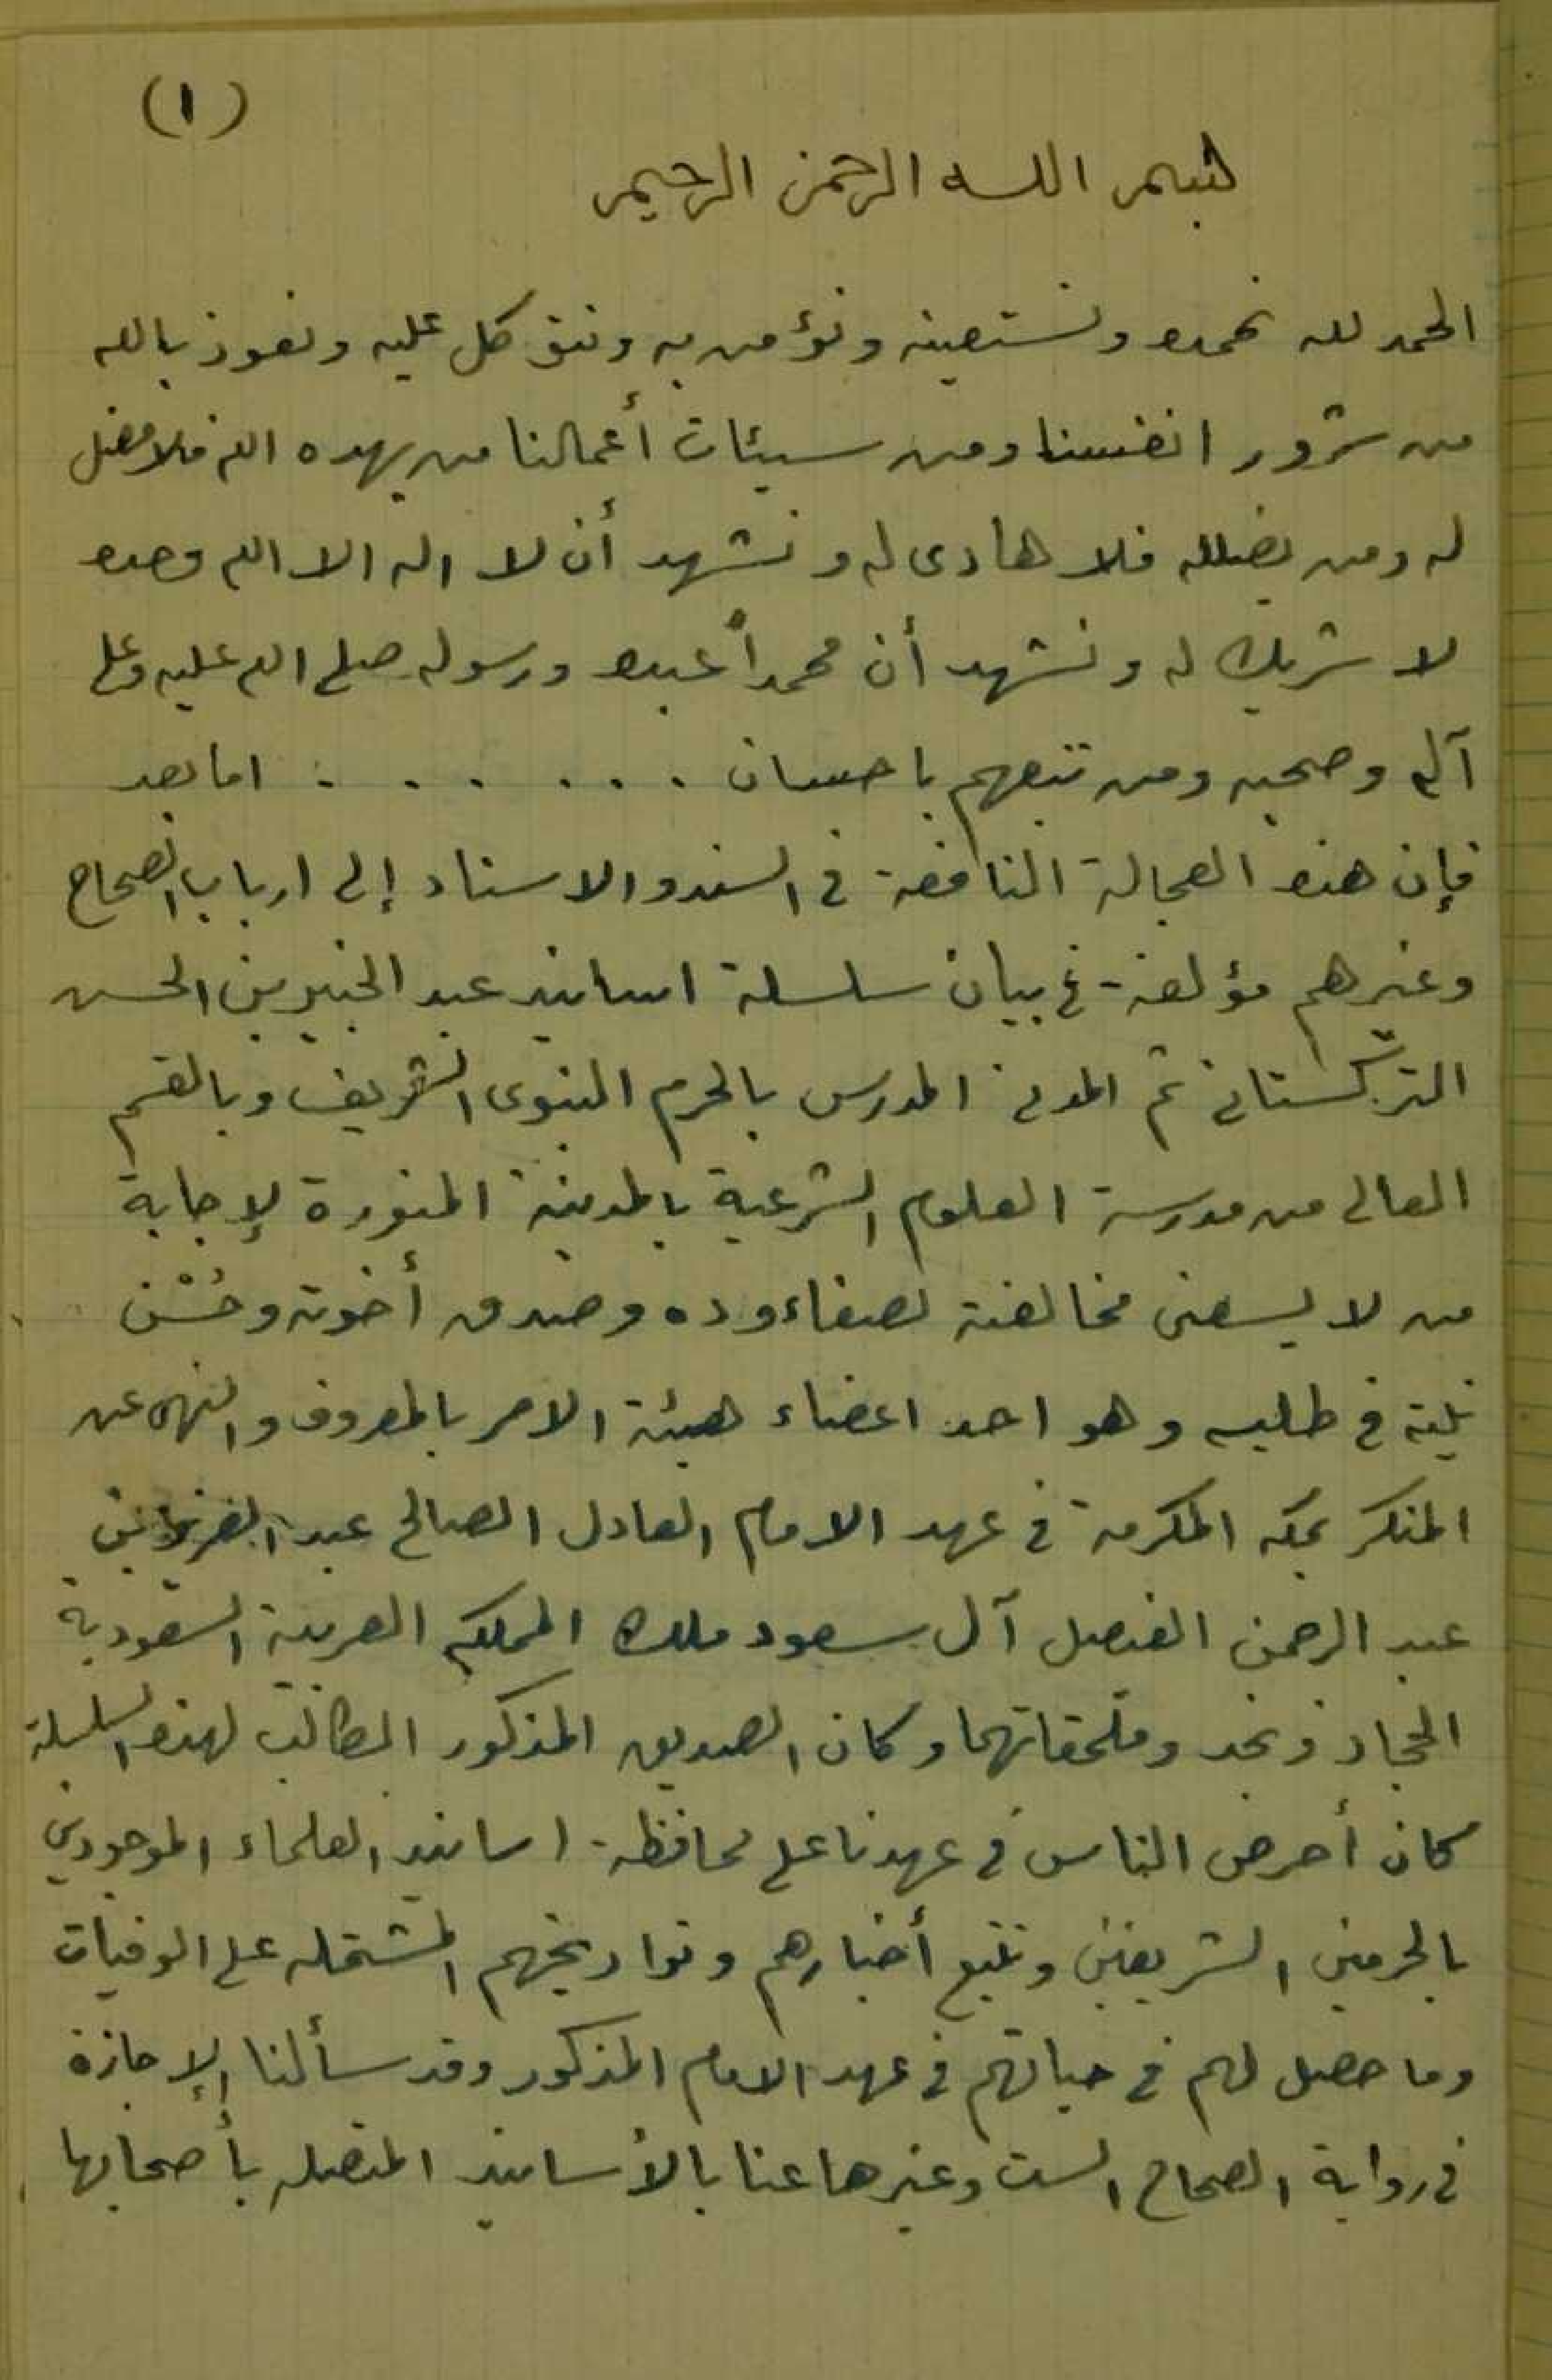 (١)
بسم الله الرحمن الرحيم
الحمد لله نحمده ونستعينه ونؤمن به ونتوكل عليه ونعوذ بالله
من شرور انفسنا ومن سيئات أعمالنا من يهده الله فلا مضل
له ومن يضلله فلا هادى له ونشهد أن لا اله الا الله وحده
لا شريك له ونشهد أن محمداً عبده ورسوله صلى الله عليه وعلى
آله وصحبه ومن تبعهم باحسان . . . . . . : اما بعد
فإن هذه العجالة النافعة فى السند والاسناد إلى ارباب الصحاح
وغيرهم مؤلفة فى بيان سلسلة اسانيد عبد الخبير بن الحسن
التركستانى ثم المدنى المدرس بالحرم النبوى الشريف وبالقسم
العالى من مدرسة العلوم الشرعية بالمدينة المنورة لإجابة
من لا يسعنى مخالفته لصفاء وده وصدق أخوته وحُسْن
نيته فى طلبه وهو احد اعضاء هيئة الامر بالمعروف والنهى عن
المنكر بمكه المكرمة فى عهد الامام العادل الصالح عبد العزيز بن
عبد الرحمن الفيصل آل سعود ملك المملكه العربية السعودية
الحجاز ونجد وملحقاتهما وكان الصديق المذكور الطالب لهذه السلسلة
كان أحرص الناس فى عهدنا على محافظة اسانيد العلماء الموجودين
بالحرمين الشريفين وتتبع أخبارهم وتواريخهم المشتمله على الوفيات
وما حصل لهم فى حياتهم فى عهد الامام المذكور وقد سألنا الإجازة
فى رواية الصحاح الست وغيرها عنا بالأسانيد المتصله بأصحابها